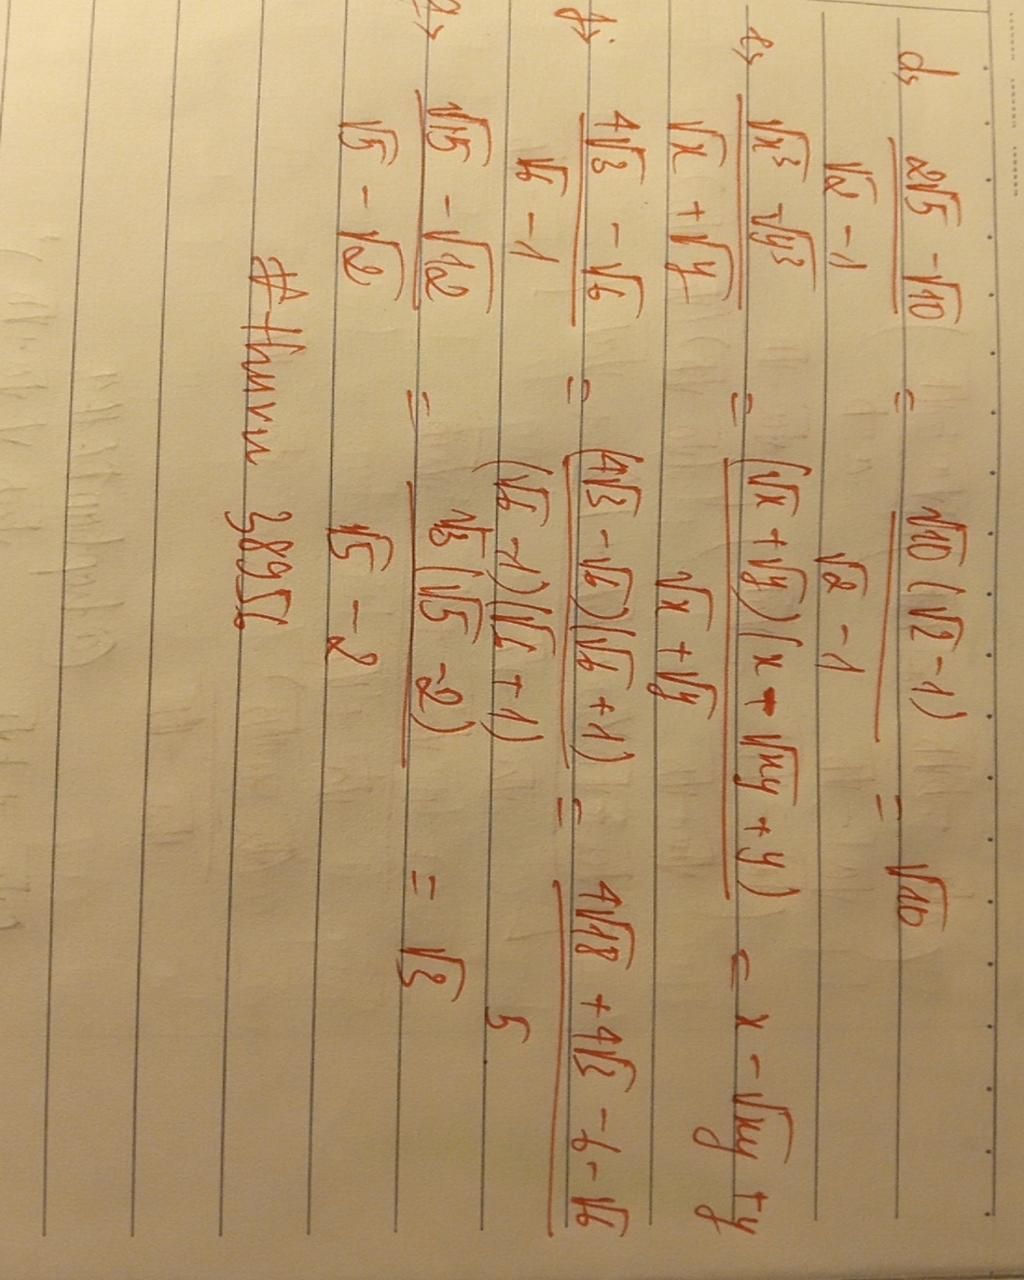 d, (2√5 - √10)/(√2 - 1) = √10(√2 - 1)/(√2 - 1) = √10
e, (√x³ - √y³)/(√x + √y) = (√x + √y)(x - √xy + y)/(√x + √y) = x - √xy + y
f, (4√3 - √6)/(√6 - 1) = (4√3 - √6)(√6 + 1)/((√6 - 1)(√6 + 1)) = (4√18 + 4√3 - 6 - √6)/5
g, (√15 - √12)/(√5 - √2) = √3(√5 - 2)/(√5 - 2) = √3